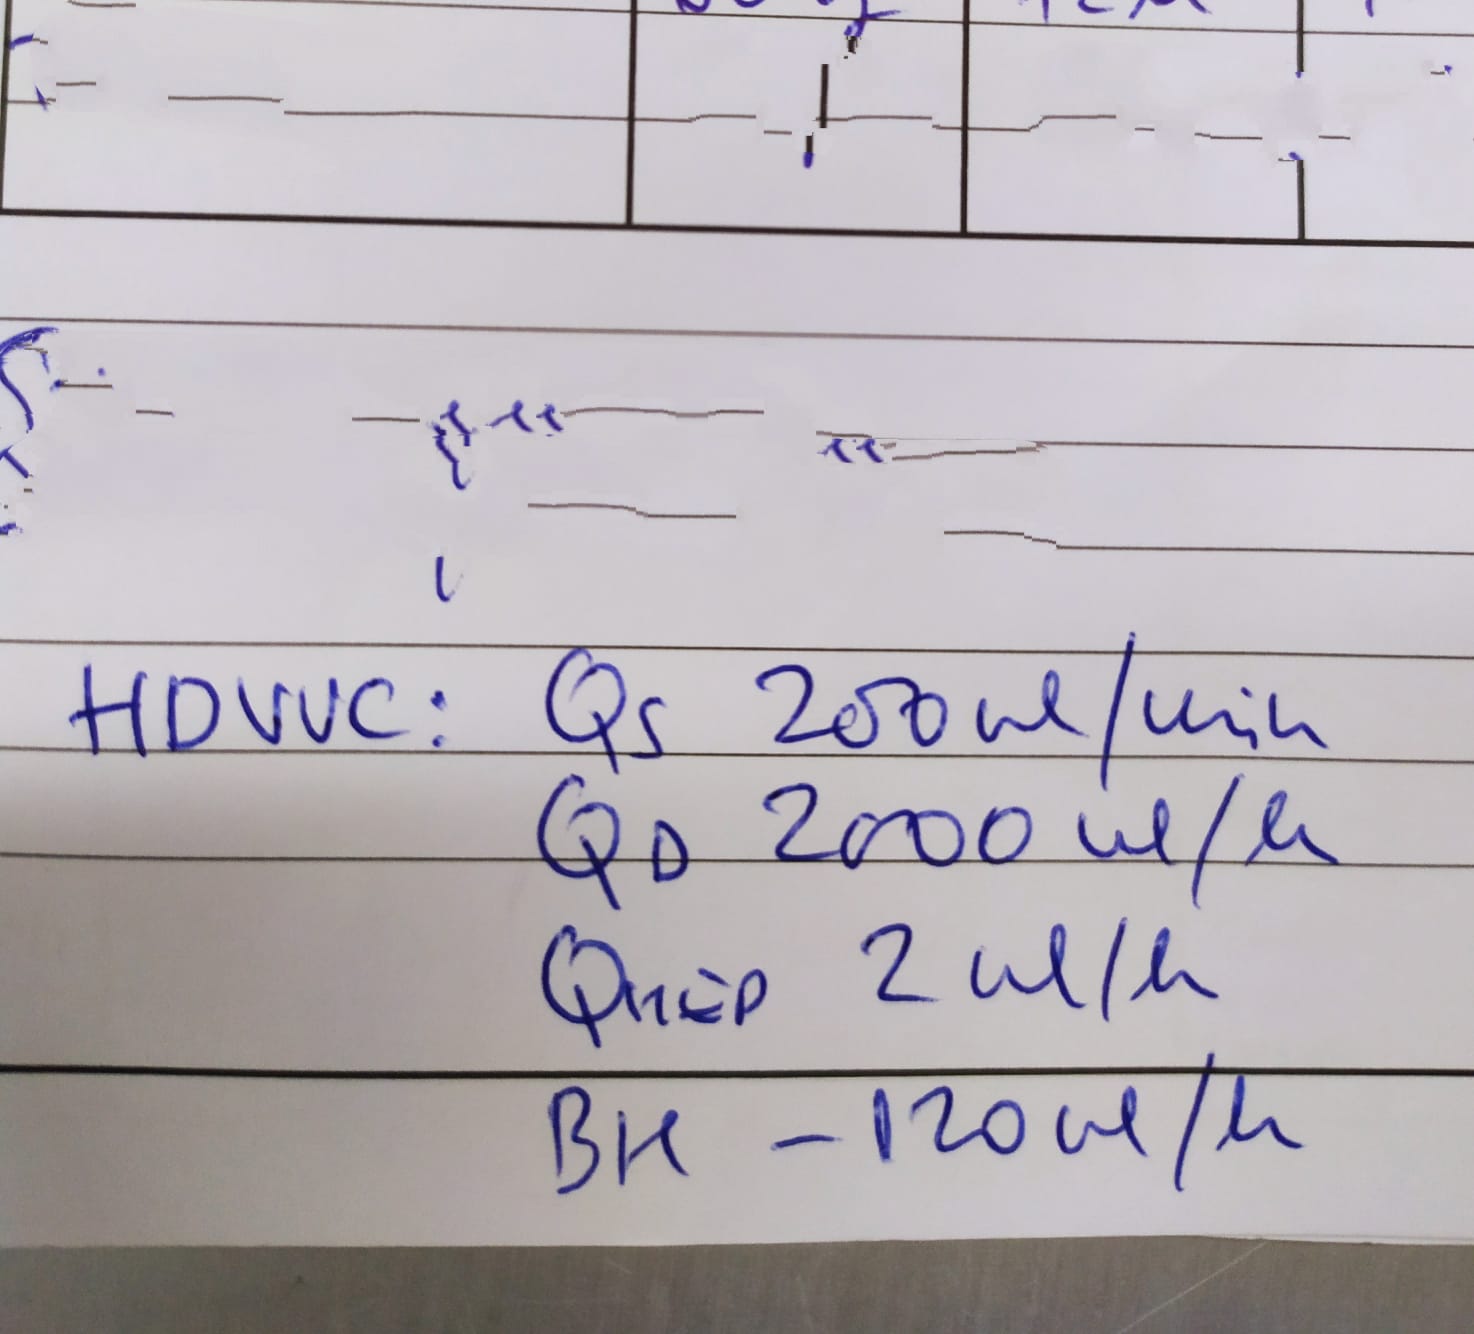 HDVVC: QS 200 ml/min
QD 2000 ml/h
QHÉP 2 ml/h
BH - 120 ml/h